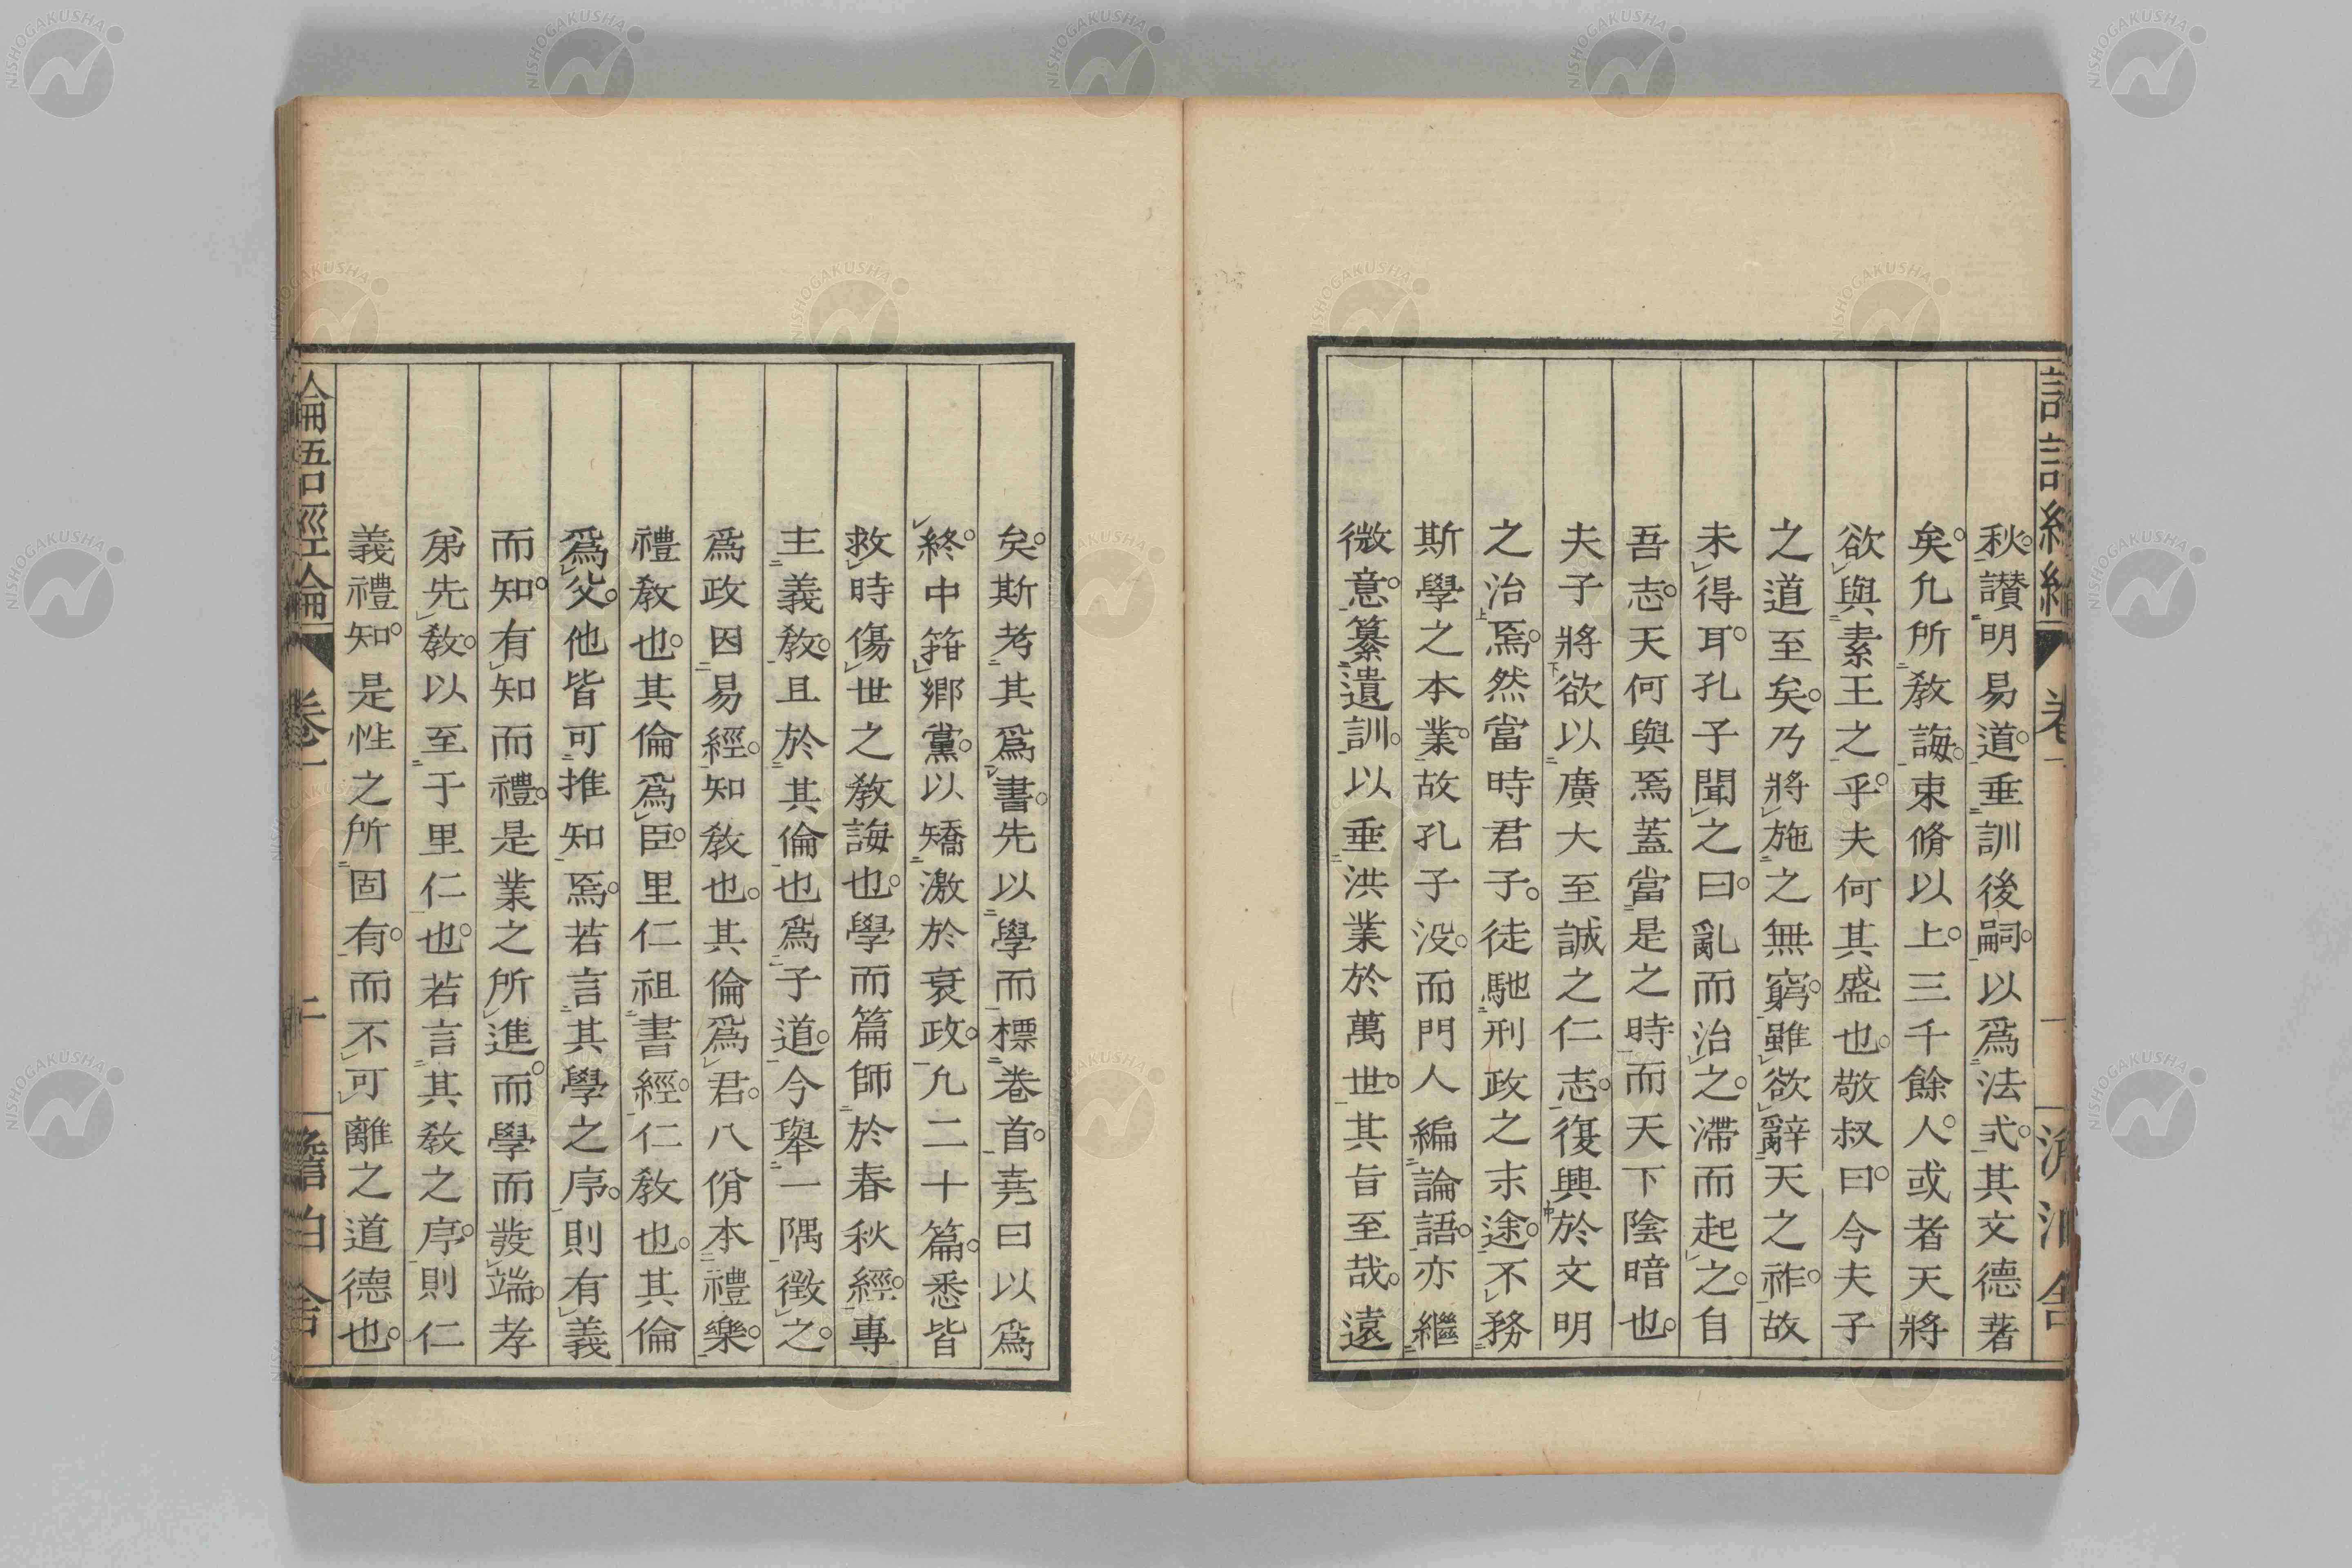 秋。讃明易道。垂訓後嗣。以爲法式。其文德著
矣。凡所敎誨。束脩以上。三千餘人。或者天將
欲與素王之乎。夫何其盛也。敬叔曰。今夫子
之道至矣。乃將施之無窮。雖欲辭天之祚。故
未得耳。孔子聞之曰。亂而治之。滯而起之。自
吾志。天何與焉蓋當是之時而天下陰暗也。
夫子將欲以廣大至誠之仁志。復興於文明
之治焉。然當時君子。徒馳刑政之末途。不務
斯學之本業。故孔子没。而門人編論語。亦繼
微意。纂遺訓。以垂洪業於萬世。其旨至哉。遠
矣。斯考其爲書。先以學而標卷首。堯曰以爲
終。中箝鄉黨。以矯激於衰政。凡二十篇。悉皆
救時傷世之敎誨也。學而篇師於春秋經。專
主義敎。且於其倫也爲子道。今舉一隅徵之。
爲政因易經。知敎也。其倫爲君。八佾本禮樂。
禮敎也。其倫爲臣。里仁祖書經。仁敎也。其倫
爲父。他皆可推知焉。若言其學之序。則有義
而知。有知而禮。是業之所進。而學而發端。孝
弟先敎。以至于里仁也。若言其敎之序。則仁
義禮知。是性之所固有。而不可離之道德也。
論語經綸
卷一